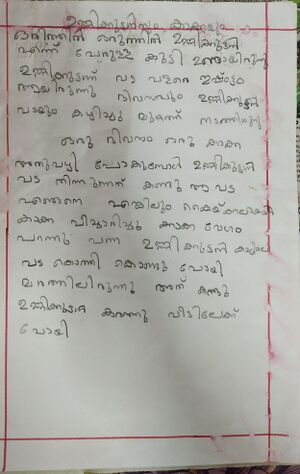 ഉണ്ണിക്കുട്ടനും കാക്കയും
ഒരിടത്ത് ഒരുന്നിൽ ഉണ്ണിക്കുട്ടൻ
എന്ന് പേരുള്ള കുട്ടി ഉണ്ടായിരുന്നു
ഉണ്ണിക്കുട്ടന് വട വളരെ ഇഷ്ടം
ആയിരുന്നു ദിവസവും ഉണ്ണിക്കുട്ടൻ
വടയും കഴിച്ചു മുറ്റത്ത് നടന്നിരുന്നു
ഒരു ദിവസം ഒരു കാക്ക
അതുവഴി പോകുമ്പോൾ ഉണ്ണിക്കുട്ടൻ
വട തിന്നുന്നത് കണ്ടു ആ വട
എങ്ങനെ എങ്കിലും കൈക്കലാക്കാൻ
കാക്ക വിചാരിച്ചു കാക്ക വേഗം
പറന്നു വന്ന ഉണ്ണിക്കുട്ടൻ കയ്യിലെ
വട കൊത്തി കൊണ്ടു പോയി
മരത്തിലിരുന്നു അത് കണ്ടു
ഉണ്ണിക്കുട്ടൻ കരഞ്ഞു വീടിലേക്ക്
പോയി